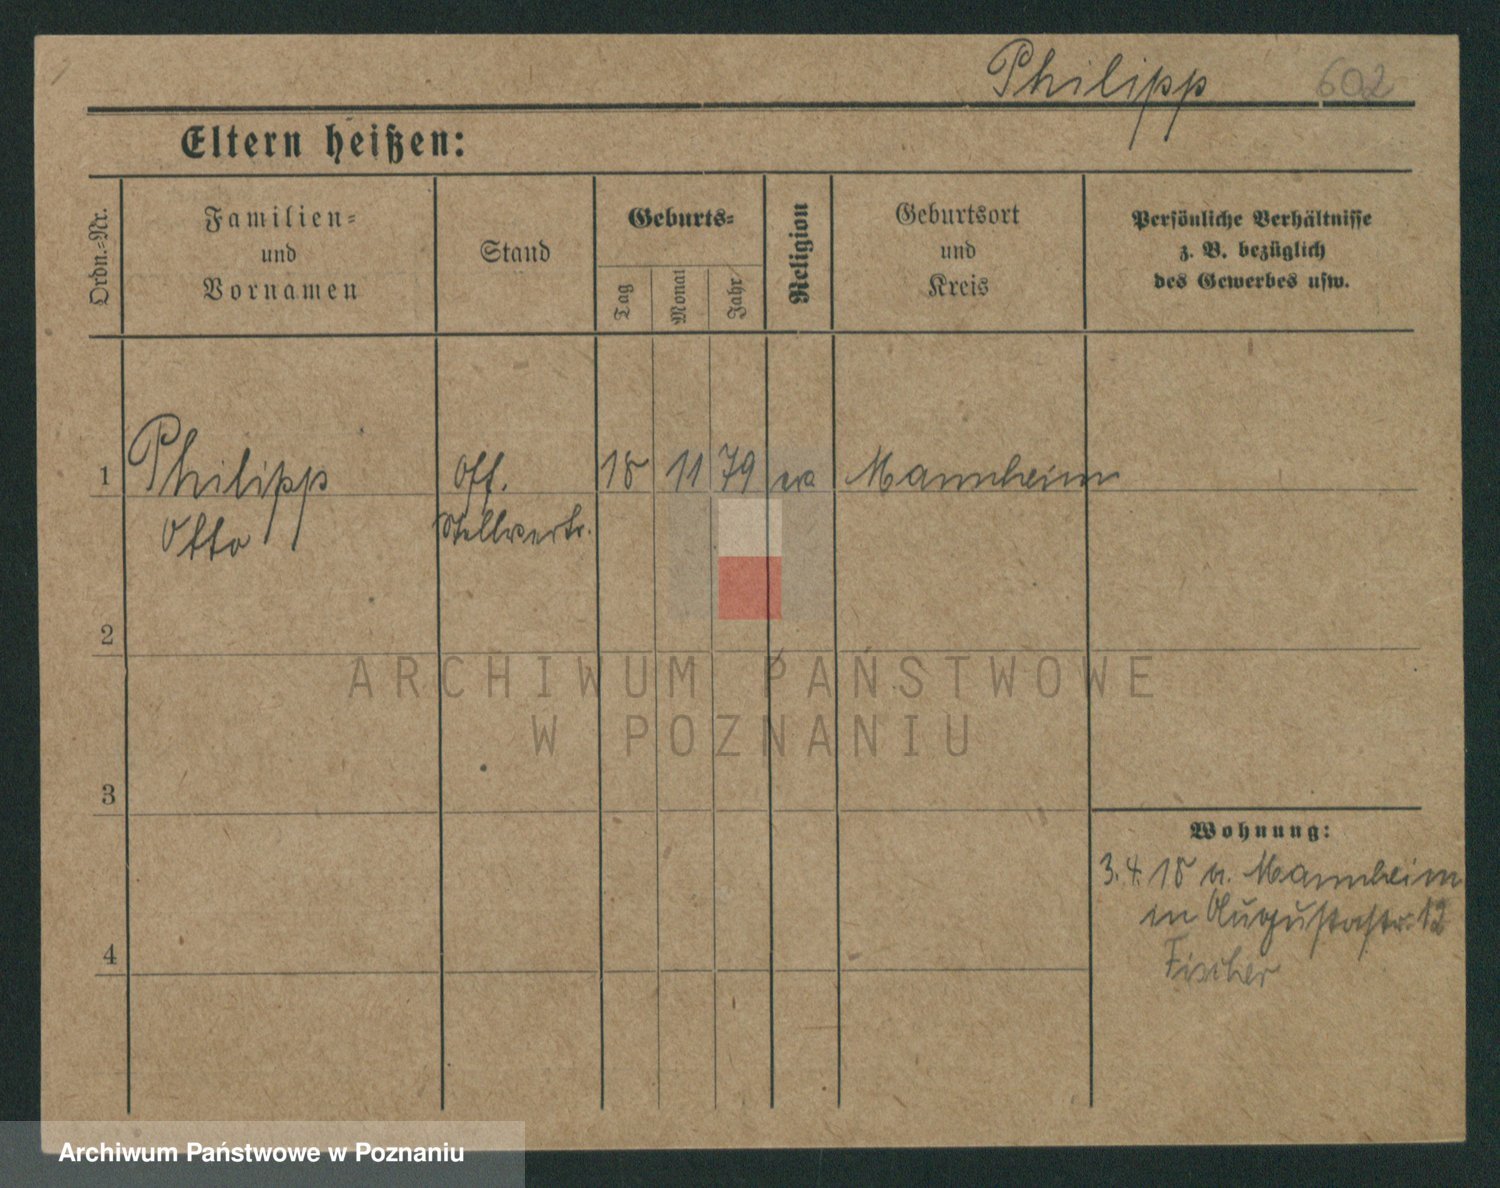 Philipp 602
Eltern heißen:
Ordn.=Nr.
Familien=
und
Vornamen
Stand
Geburts=
Tag
Monat
Jahr
Religion
Geburtsort
und
Kreis
Persönliche Verhältnisse
z. B. bezüglich
des Gewerbes usw.
1 Philipp Off. 18 11 79 ev Mannheim
Otto Stellvertr.
2
ARCHIWUM PAŃSTWOWE
W POZNANIU
3
Wohnung:
3.4.18 v. Mannheim
in Augustastr. 12
Fischer
4
Archiwum Państwowe w Poznaniu